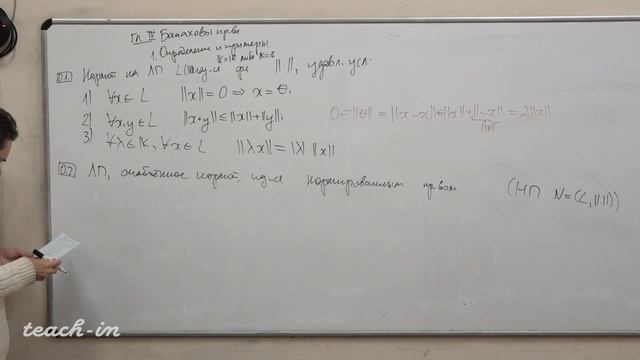 Гл. III Банаховы пр-ва
1. Определение и примеры
K=ℝ либо K=ℂ
O.1 Нормой на ЛП L наз-ся ф-я ||·||, удовл. усл:
1) ∀x∈L ||x||=0 ⇒ x=θ;
2) ∀x,y∈L ||x+y||≤||x||+||y||;
0=||θ||=||x-x||≤||x||+||-x||=2||x||
||x||
3) ∀λ∈K, ∀x∈L ||λx||=|λ| ||x||.
O.2 ЛП, снабжённое нормой, наз-ся нормированным пр-вом (НП N=(L,||·||))
teach-in